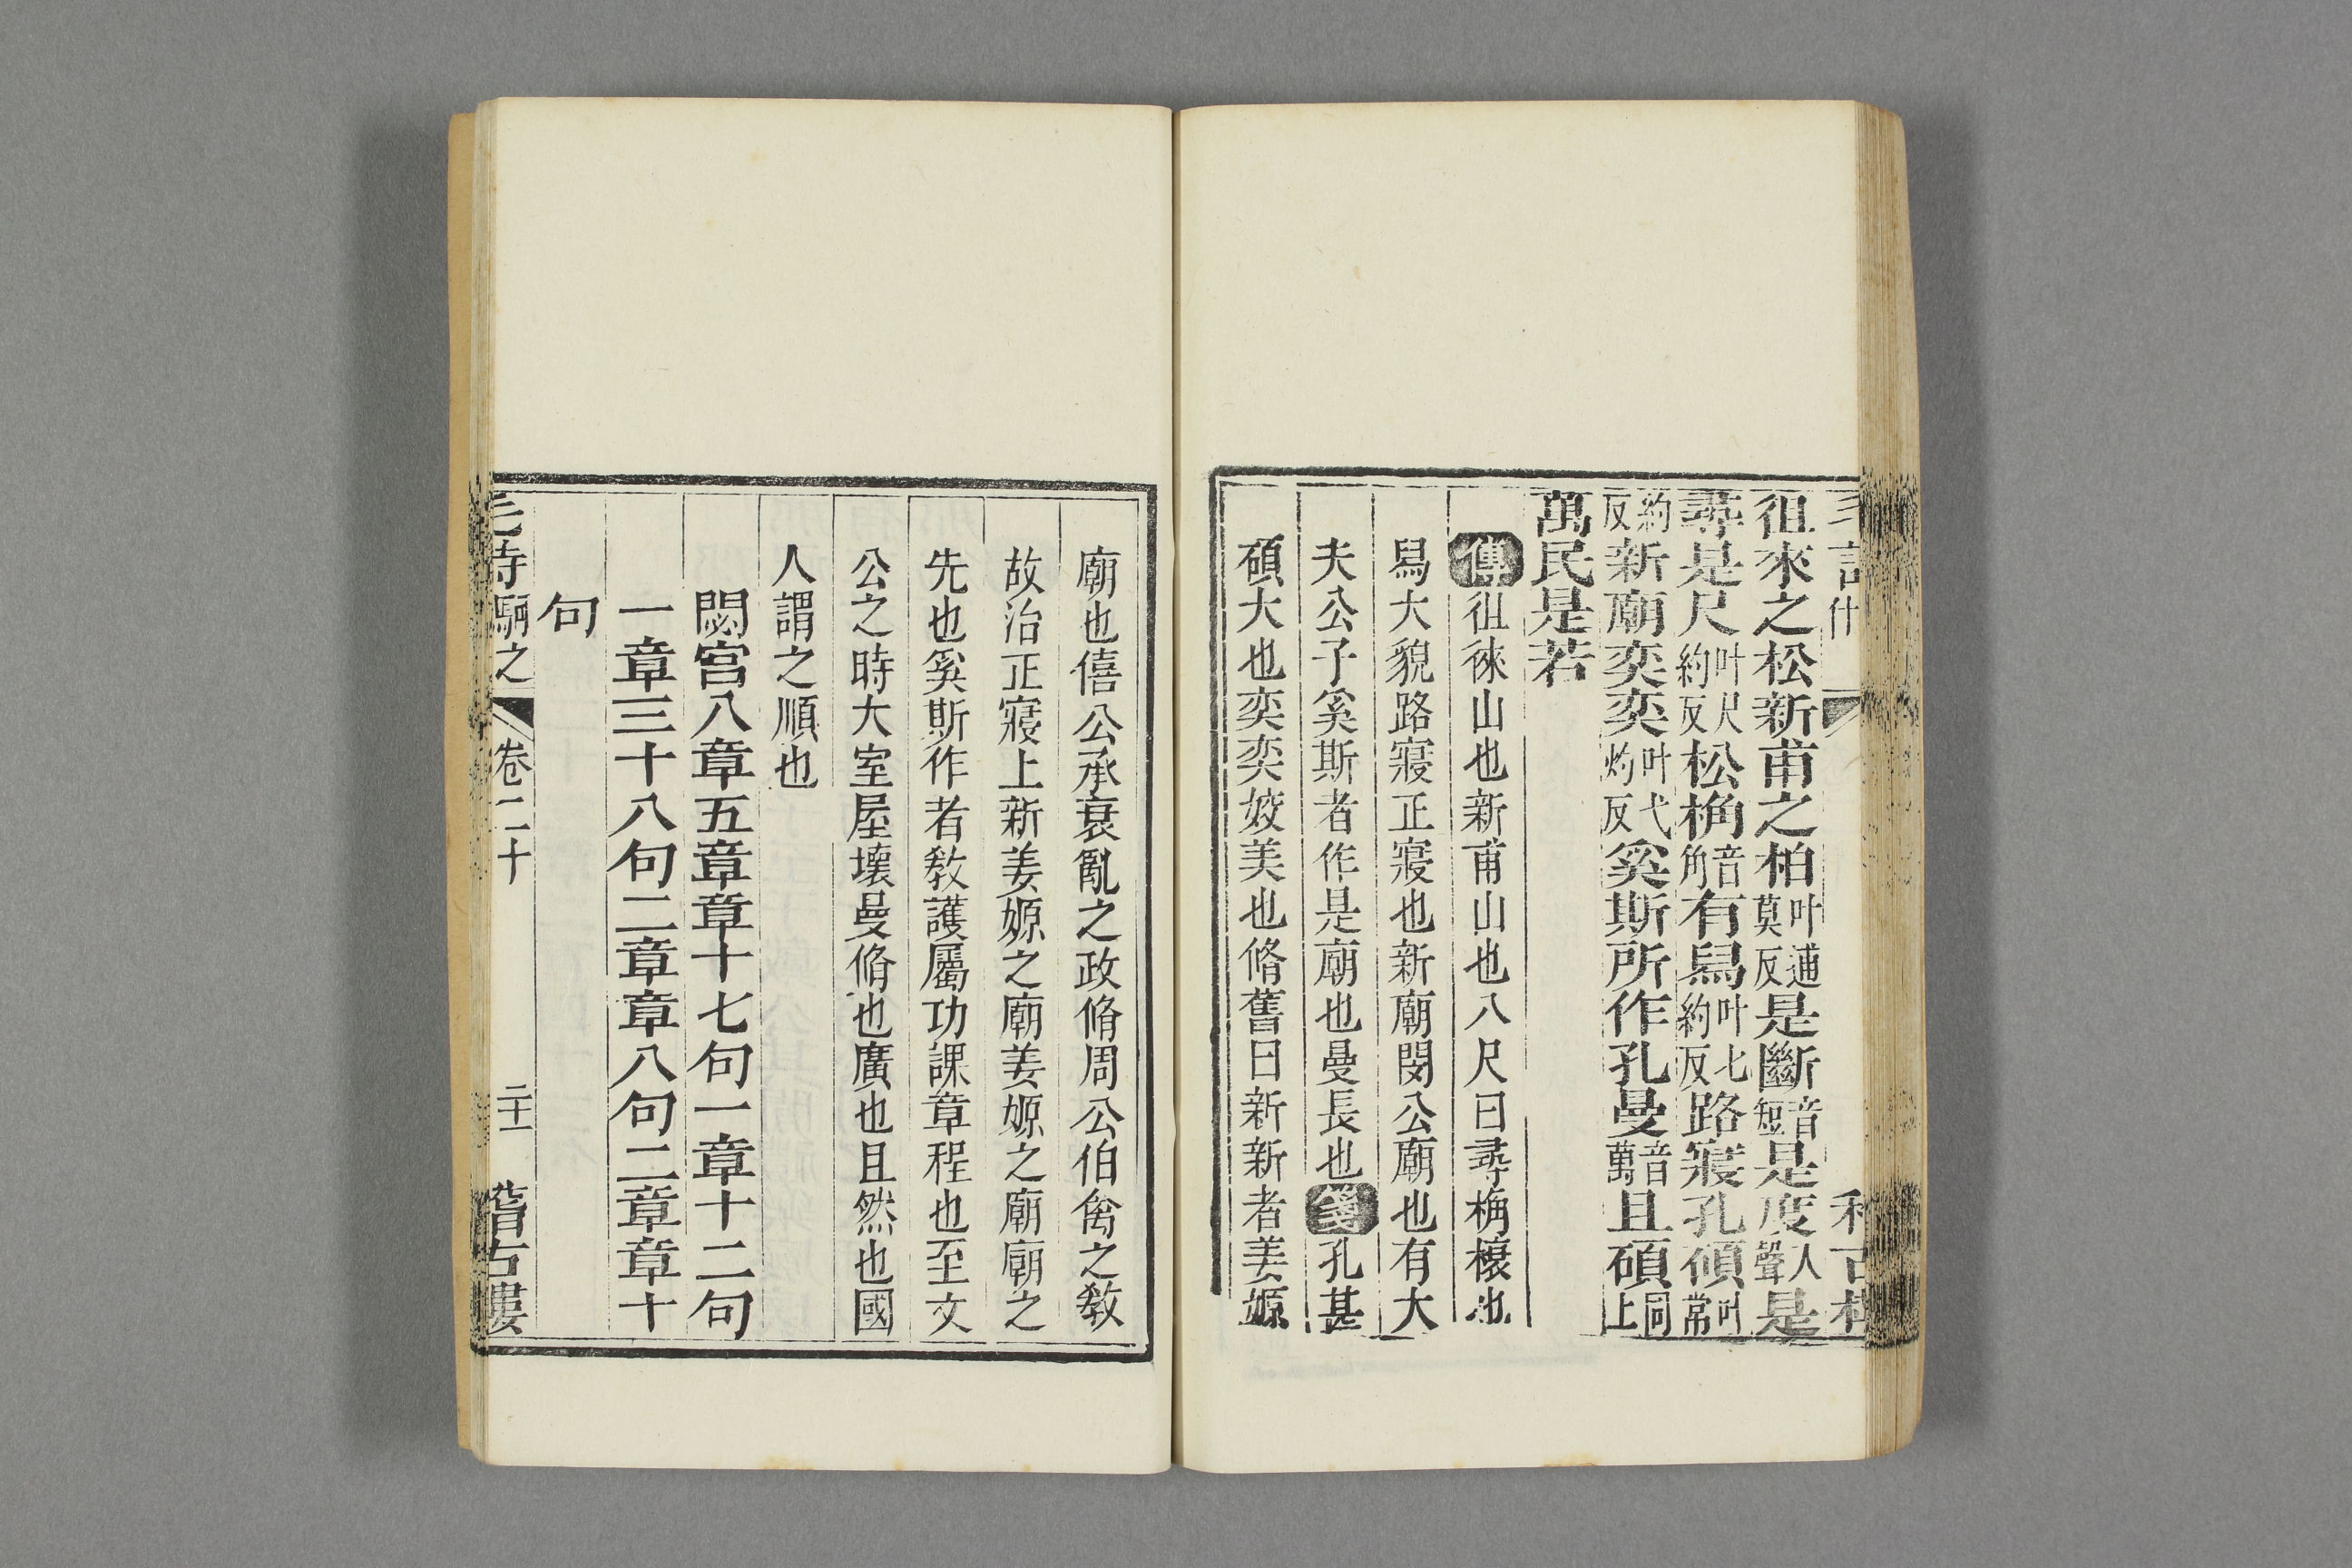 徂來之松新甫之柏叶逋莫反是斷音短是度入聲是
尋是尺叶尺約反松桷音角有舄叶七約反路寢孔碩叶常
約反新廟奕奕叶弋灼反奚斯所作孔曼音萬且碩同上
萬民是若
傳徂徠山也新甫山也八尺曰尋桷榱也
舄大貌路寢正寢也新廟閔公廟也有大
夫公子奚斯者作是廟也曼長也箋孔甚
碩大也奕奕姣美也脩舊曰新新者姜嫄
廟也僖公承衰亂之政脩周公伯禽之敎
故治正寢上新姜嫄之廟姜嫄之廟廟之
先也奚斯作者敎護屬功課章程也至文
公之時大室屋壞曼脩也廣也且然也國
人謂之順也
閟宮八章五章章十七句一章十二句
一章三十八句二章章八句二章章十
句
毛詩駉之 卷二十 二十一 稽古樓